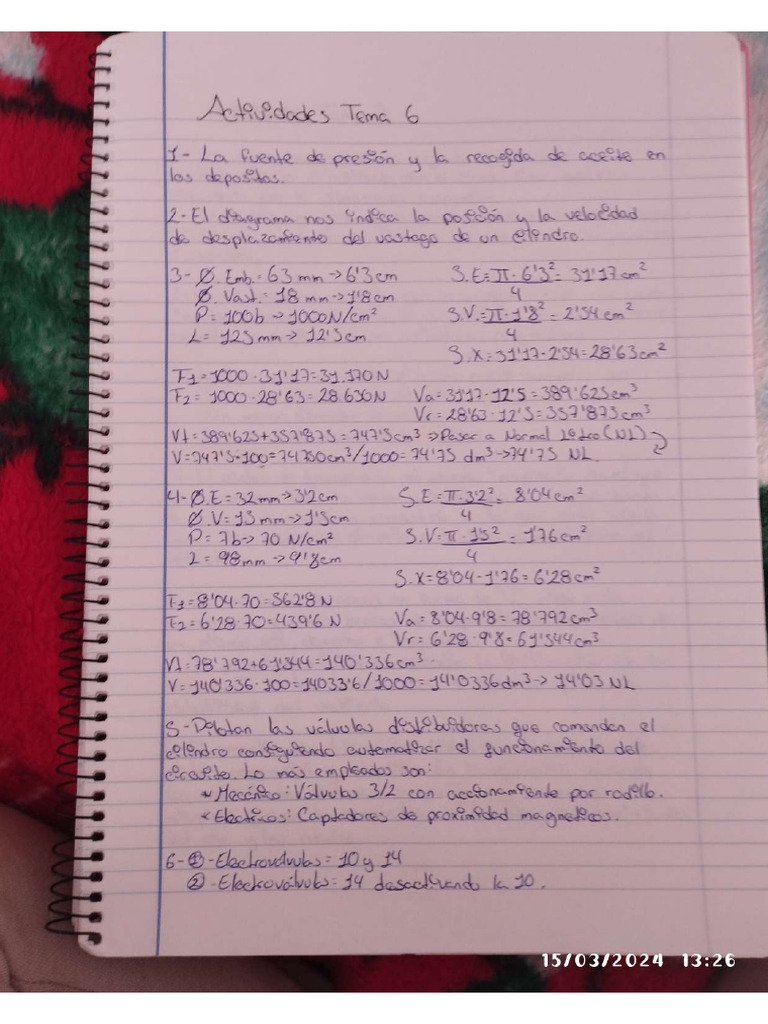 Actividades Tema 6
1- La fuente de presión y la recogida de aceite en
los depositos.
2- El diagrama nos indica la posición y la velocidad
de desplazamiento del vastago de un cilindro.
3- Ø. Emb.= 63 mm → 6'3 cm
S.E = π · 6'3² = 31'17 cm²
4
Ø. Vast.: 18 mm → 1'8 cm
P = 100b → 1000 N/cm²
S.V. = π · 1'8² = 2'54 cm²
4
L = 125 mm → 12'5 cm
S.X = 31'17 - 2'54 = 28'63 cm²
F1 = 1000 · 31'17 = 31.170 N
F2 = 1000 · 28'63 = 28.630 N
Va = 31'17 · 12'5 = 389'625 cm³
Vr = 28'63 · 12'5 = 357'875 cm³
Vt = 389'625 + 357'875 = 747'5 cm³ → Pasar a Normal Litro (NL)
V = 747'5 · 100 = 74750 cm³/1000 = 74'75 dm³ → 74'75 NL.
4- Ø.E = 32 mm → 3'2 cm
S.E = π · 3'2² = 8'04 cm²
4
Ø.V = 15 mm → 1'5 cm
P = 7b → 70 N/cm²
S.V = π · 1'5² = 1'76 cm²
4
L = 98 mm → 9'8 cm
S.X = 8'04 - 1'76 = 6'28 cm²
F1 = 8'04 · 70 = 562'8 N
F2 = 6'28 · 70 = 439'6 N
Va = 8'04 · 9'8 = 78'792 cm³
Vr = 6'28 · 9'8 = 61'544 cm³
Vt = 78'792 + 61'544 = 140'336 cm³.
V = 140'336 · 100 = 14033'6 / 1000 = 14'0336 dm³ → 14'03 NL
5- Pilotan las válvulas distibuidoras que comandan el
cilindro consiguiendo automatizar el funcionamiento del
circuito. Lo más empleados son:
* Mecánico: Válvulas 3/2 con accionamiento por rodillo.
* Electicos: Captadores de proximidad magneticos.
6- ① - Electrovalvulas = 10 y 14
② - Electroválvula = 14 desactivando la 10.
15/03/2024 13:26